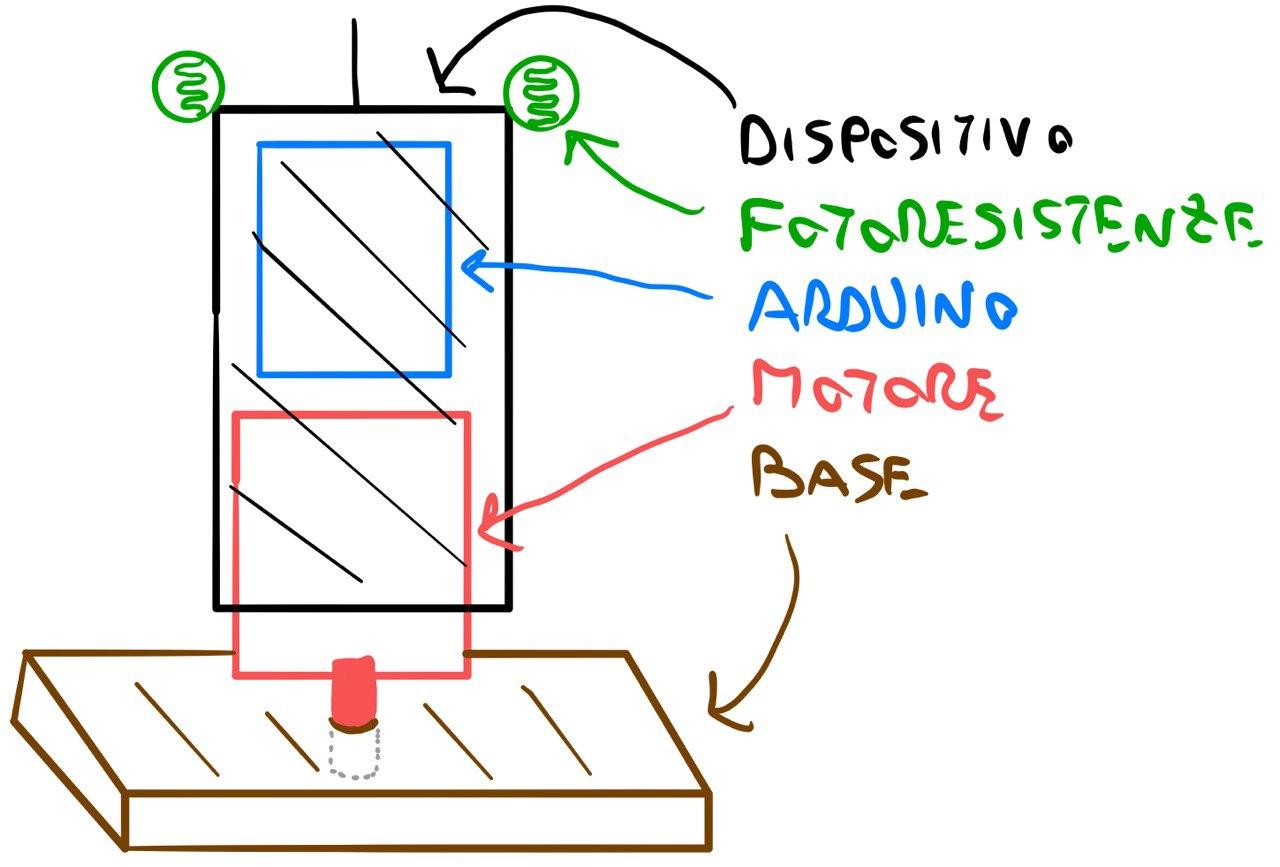 DISPOSITIVO
FOTORESISTENZE
ARDUINO
MOTORE
BASE